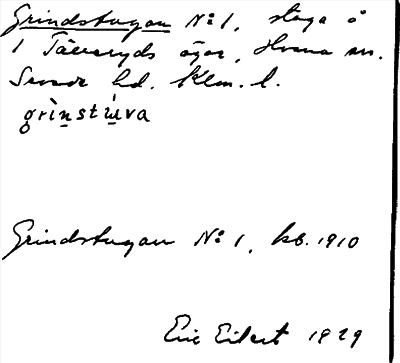 Grindstugan No 1, stuga å
1 Täveryds ägor, Hvena sn.
Sevede hd. Klm. l.
grìnstúva
Grindstugan No 1, kb. 1910
Eric Eilert 1929